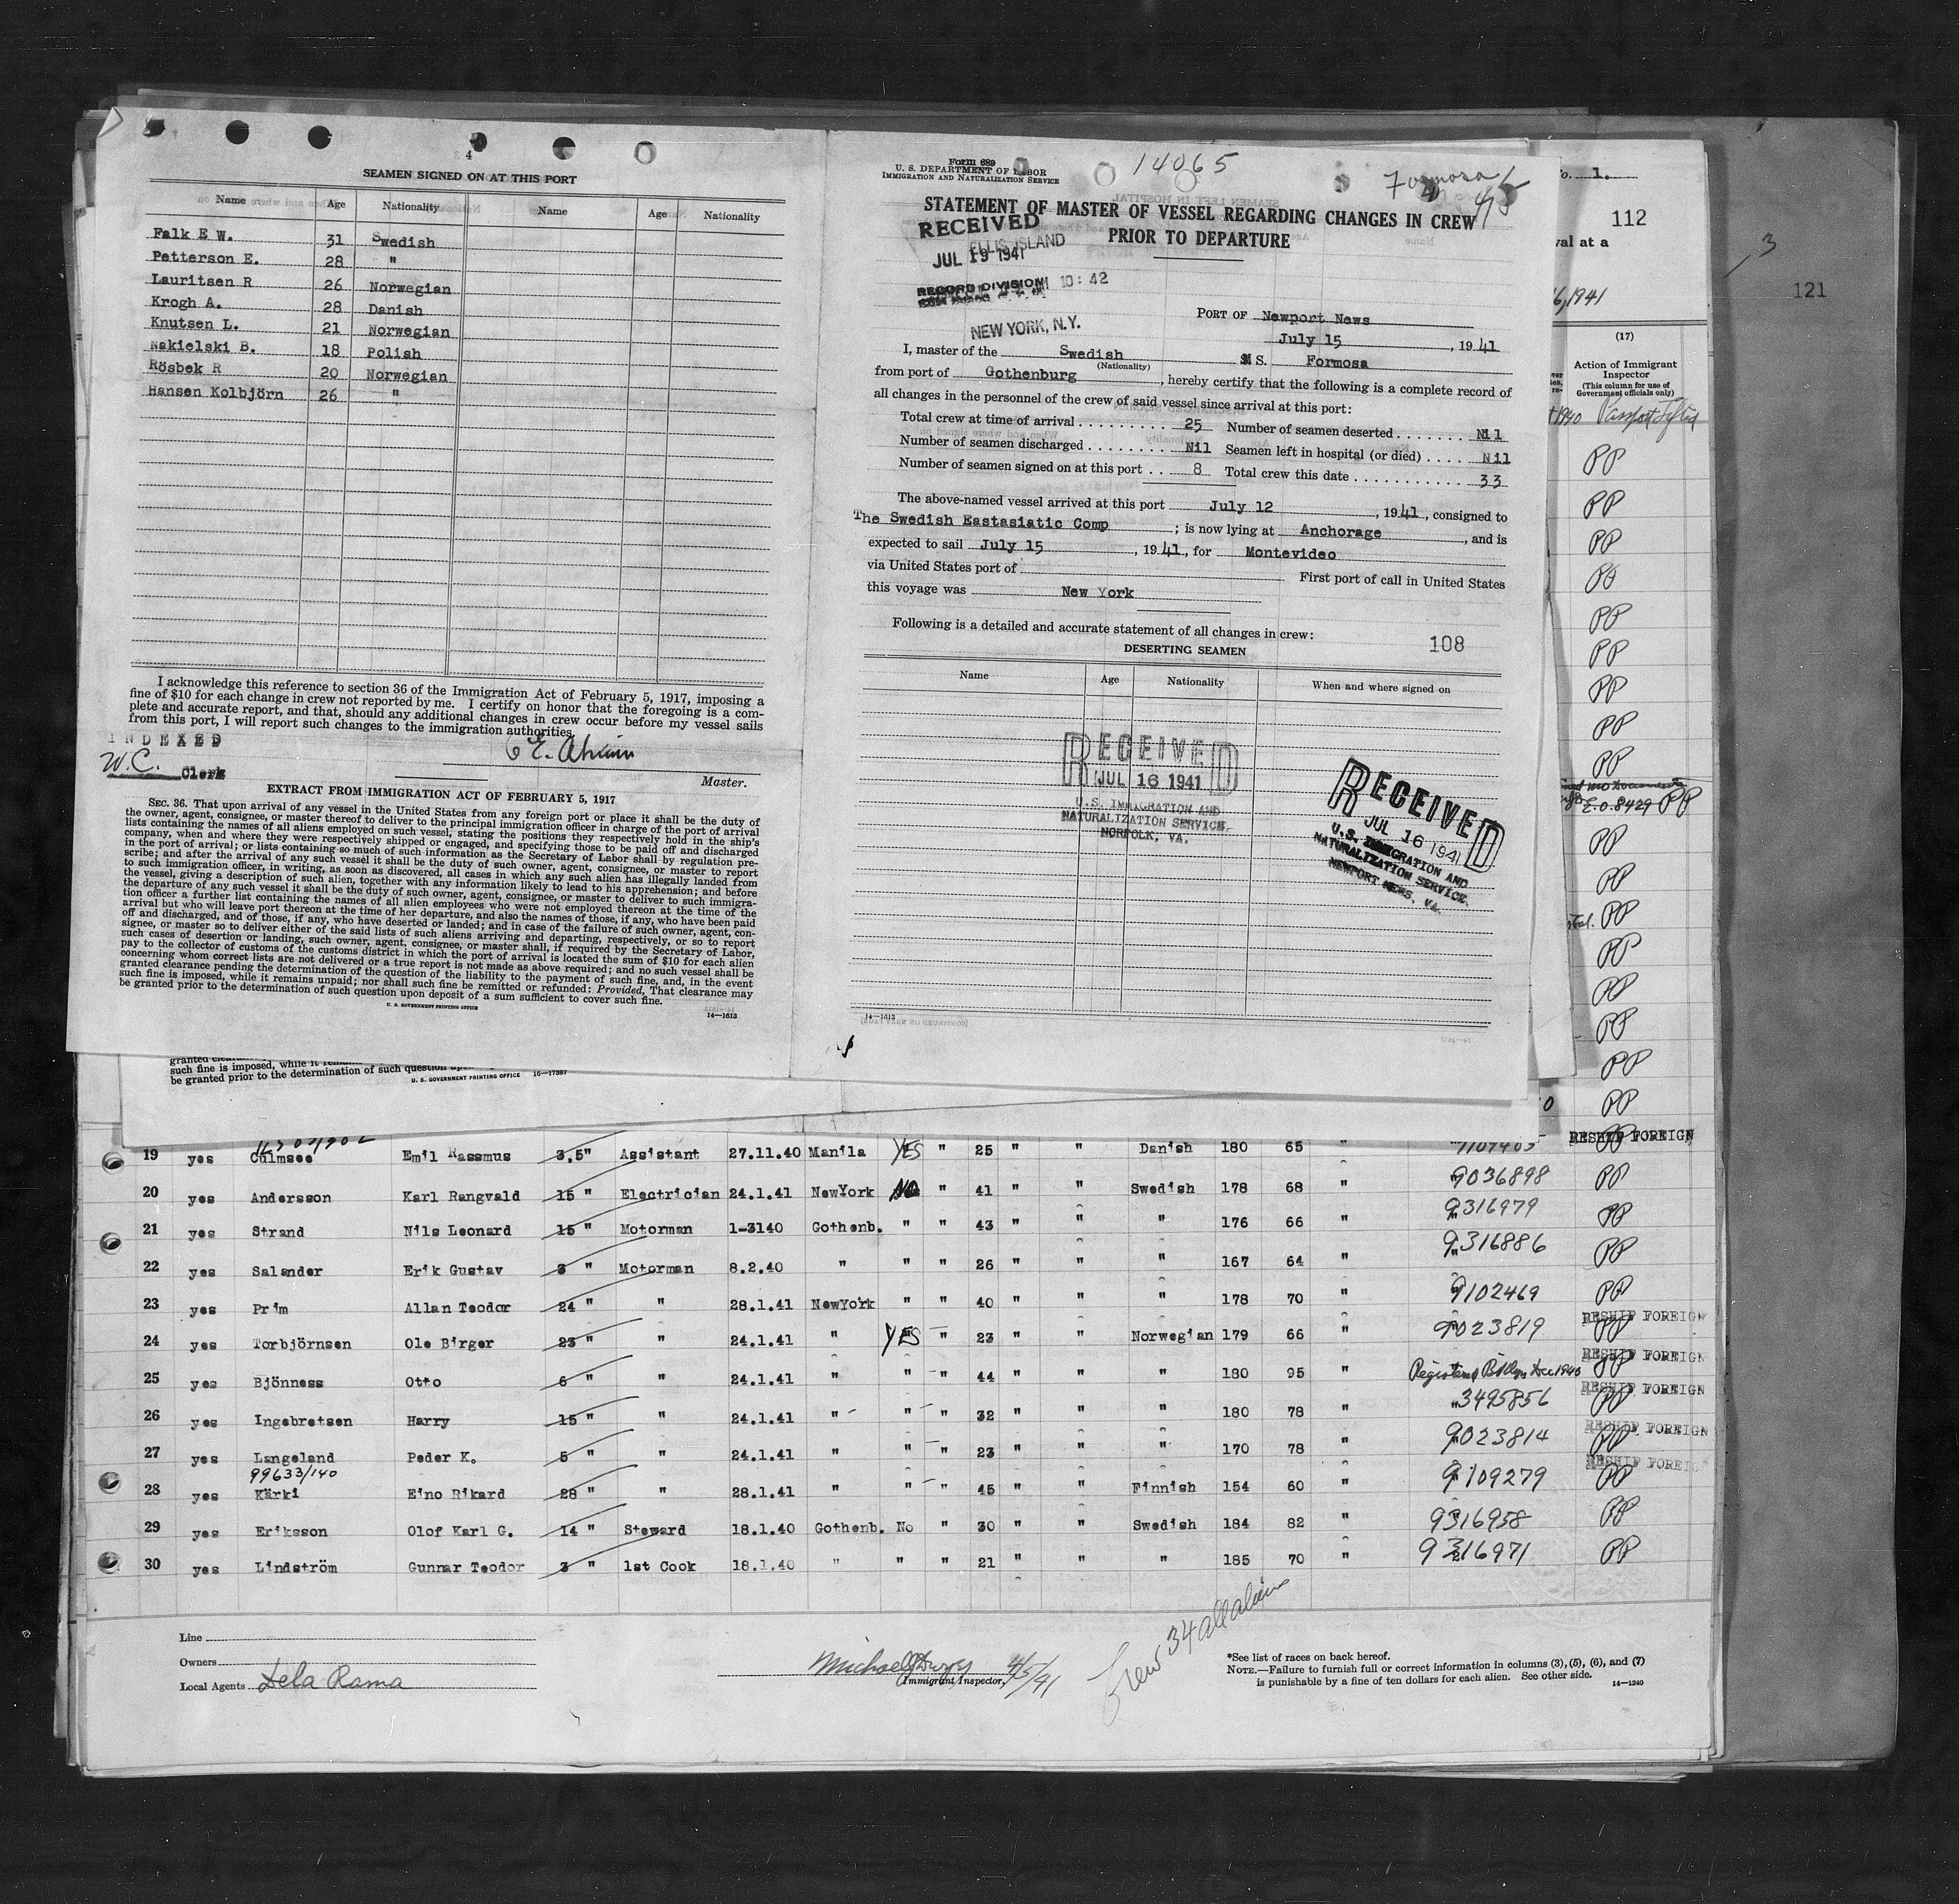 4
SEAMEN SIGNED ON AT THIS PORT
Name Age Nationality Name Age Nationality
Falk E W. 31 Swedish
Petterson E. 28 "
Lauritsen R 26 Norwegian
Krogh A. 28 Danish
Knutsen L. 21 Norwegian
Nakielski B. 18 Polish
Rösbek R 20 Norwegian
Hansen Kolbjörn 26 "
I acknowledge this reference to section 36 of the Immigration Act of February 5, 1917, imposing a
fine of $10 for each change in crew not reported by me. I certify on honor that the foregoing is a com-
plete and accurate report, and that, should any additional changes in crew occur before my vessel sails
from this port, I will report such changes to the immigration authorities.
INDEXED
W.C. Clerk
Master.
EXTRACT FROM IMMIGRATION ACT OF FEBRUARY 5, 1917
SEC. 36. That upon arrival of any vessel in the United States from any foreign port or place it shall be the duty of
the owner, agent, consignee, or master thereof to deliver to the principal immigration officer in charge of the port of arrival
lists containing the names of all aliens employed on such vessel, stating the positions they respectively hold in the ship's
company, when and where they were respectively shipped or engaged, and specifying those to be paid off and discharged
in the port of arrival; or lists containing so much of such information as the Secretary of Labor shall by regulation pre-
scribe; and after the arrival of any such vessel it shall be the duty of such owner, agent, consignee, or master to report
to such immigration officer, in writing, as soon as discovered, all cases in which any such alien has illegally landed from
the vessel, giving a description of such alien, together with any information likely to lead to his apprehension; and before
the departure of any such vessel it shall be the duty of such owner, agent, consignee, or master to deliver to such immigra-
tion officer a further list containing the names of all alien employees who were not employed thereon at the time of the
arrival but who will leave port thereon at the time of her departure, and also the names of those, if any, who have been paid
off and discharged, and of those, if any, who have deserted or landed; and in case of the failure of such owner, agent, con-
signee, or master so to deliver either of the said lists of such aliens arriving and departing, respectively, or so to report
such cases of desertion or landing, such owner, agent, consignee, or master shall, if required by the Secretary of Labor,
pay to the collector of customs of the customs district in which the port of arrival is located the sum of $10 for each alien
concerning whom correct lists are not delivered or a true report is not made as above required; and no such vessel shall be
granted clearance pending the determination of the question of the liability to the payment of such fine, and, in the event
such fine is imposed, while it remains unpaid; nor shall such fine be remitted or refunded: Provided, That clearance may
be granted prior to the determination of such question upon deposit of a sum sufficient to cover such fine.
U. S. GOVERNMENT PRINTING OFFICE
14—1613
such fine is imposed, while it
be granted prior to the determination of such question
U. S. GOVERNMENT PRINTING OFFICE 16—17387
Form 689
U. S. DEPARTMENT OF LABOR
IMMIGRATION AND NATURALIZATION SERVICE
14065
Formosa
STATEMENT OF MASTER OF VESSEL REGARDING CHANGES IN CREW
PRIOR TO DEPARTURE
RECEIVED
ELLIS ISLAND
JUL 19 1941
RECORD DIVISION 10:42
NEW YORK, N.Y.
PORT OF Newport News
July 15, 1941
I, master of the Swedish M S. Formosa
(Nationality)
from port of Gothenburg, hereby certify that the following is a complete record of
all changes in the personnel of the crew of said vessel since arrival at this port:
Total crew at time of arrival 25 Number of seamen deserted Nil
Number of seamen discharged Nil Seamen left in hospital (or died) Nil
Number of seamen signed on at this port 8 Total crew this date 33
The above-named vessel arrived at this port July 12, 1941, consigned to
The Swedish Eastasiatic Comp; is now lying at Anchorage, and is
expected to sail July 15, 1941, for Montevideo
via United States port of First port of call in United States
this voyage was New York
Following is a detailed and accurate statement of all changes in crew: 108
DESERTING SEAMEN
Name Age Nationality When and where signed on
RECEIVED
JUL 16 1941
U.S. IMMIGRATION AND
NATURALIZATION SERVICE,
NORFOLK, VA.
RECEIVED
JUL 16 1941
U.S. IMMIGRATION AND
NATURALIZATION SERVICE
NEWPORT NEWS, VA.
14—1613
No. 1.
112
val at a
6, 1941
(17)
Action of Immigrant
Inspector
(This column for use of
Government officials only)
PP
PP
PP
PP
PP
PP
PP
PP
PP
E.O. 8429 PP
PP
PP
PP
PP
PP
PP
PP
PP
3
121
19 yes Culmsee Emil Rassmus 3,5" Assistant 27.11.40 Manila YES " 25 " " Danish 180 65 " RESHIP FOREIGN
20 yes Andersson Karl Rangvald 15 " Electrician 24.1.41 NewYork NO " 41 " " Swedish 178 68 " 9036898 PP
21 yes Strand Nils Leonard 15 " Motorman 1-3140 Gothenb. " " 43 " " " 176 66 " 9316979 PP
22 yes Salander Erik Gustav 3 " Motorman 8.2.40 " " " 26 " " " 167 64 " 9316886 PP
23 yes Prim Allan Teodor 24 " " 28.1.41 NewYork " " 40 " " " 178 70 " 9102469 PP
24 yes Torbjörnsen Ole Birger 23 " " 24.1.41 " YES " 23 " " Norwegian 179 66 " 9023819 RESHIP FOREIGN PP
25 yes Bjönness Otto 6 " " 24.1.41 " " " 44 " " " 180 95 " RESHIP FOREIGN PP
26 yes Ingebretsen Harry 15 " " 24.1.41 " " " 32 " " " 180 78 " 3495856 RESHIP FOREIGN PP
27 yes Langeland Peder K. 5 " " 24.1.41 " " " 23 " " " 170 78 " 9023814 RESHIP FOREIGN PP
99633/140
28 yes Kärki Eino Rikard 28 " " 28.1.41 " " " 45 " " Finnish 154 60 " 9109279 RESHIP FOREIGN PP
29 yes Eriksson Olof Karl G. 14 " Steward 18.1.40 Gothenb. No " 30 " " Swedish 184 82 " 9316958 PP
30 yes Lindström Gunnar Teodor 3 " 1st Cook 18.1.40 " " " 21 " " " 185 70 " 9316971 PP
Line
Owners
Local Agents Dela Rama
Immigrant Inspector.
Crew 34 all aliens
*See list of races on back hereof.
NOTE.—Failure to furnish full or correct information in columns (3), (5), (6), and (7)
is punishable by a fine of ten dollars for each alien. See other side.
14—1240